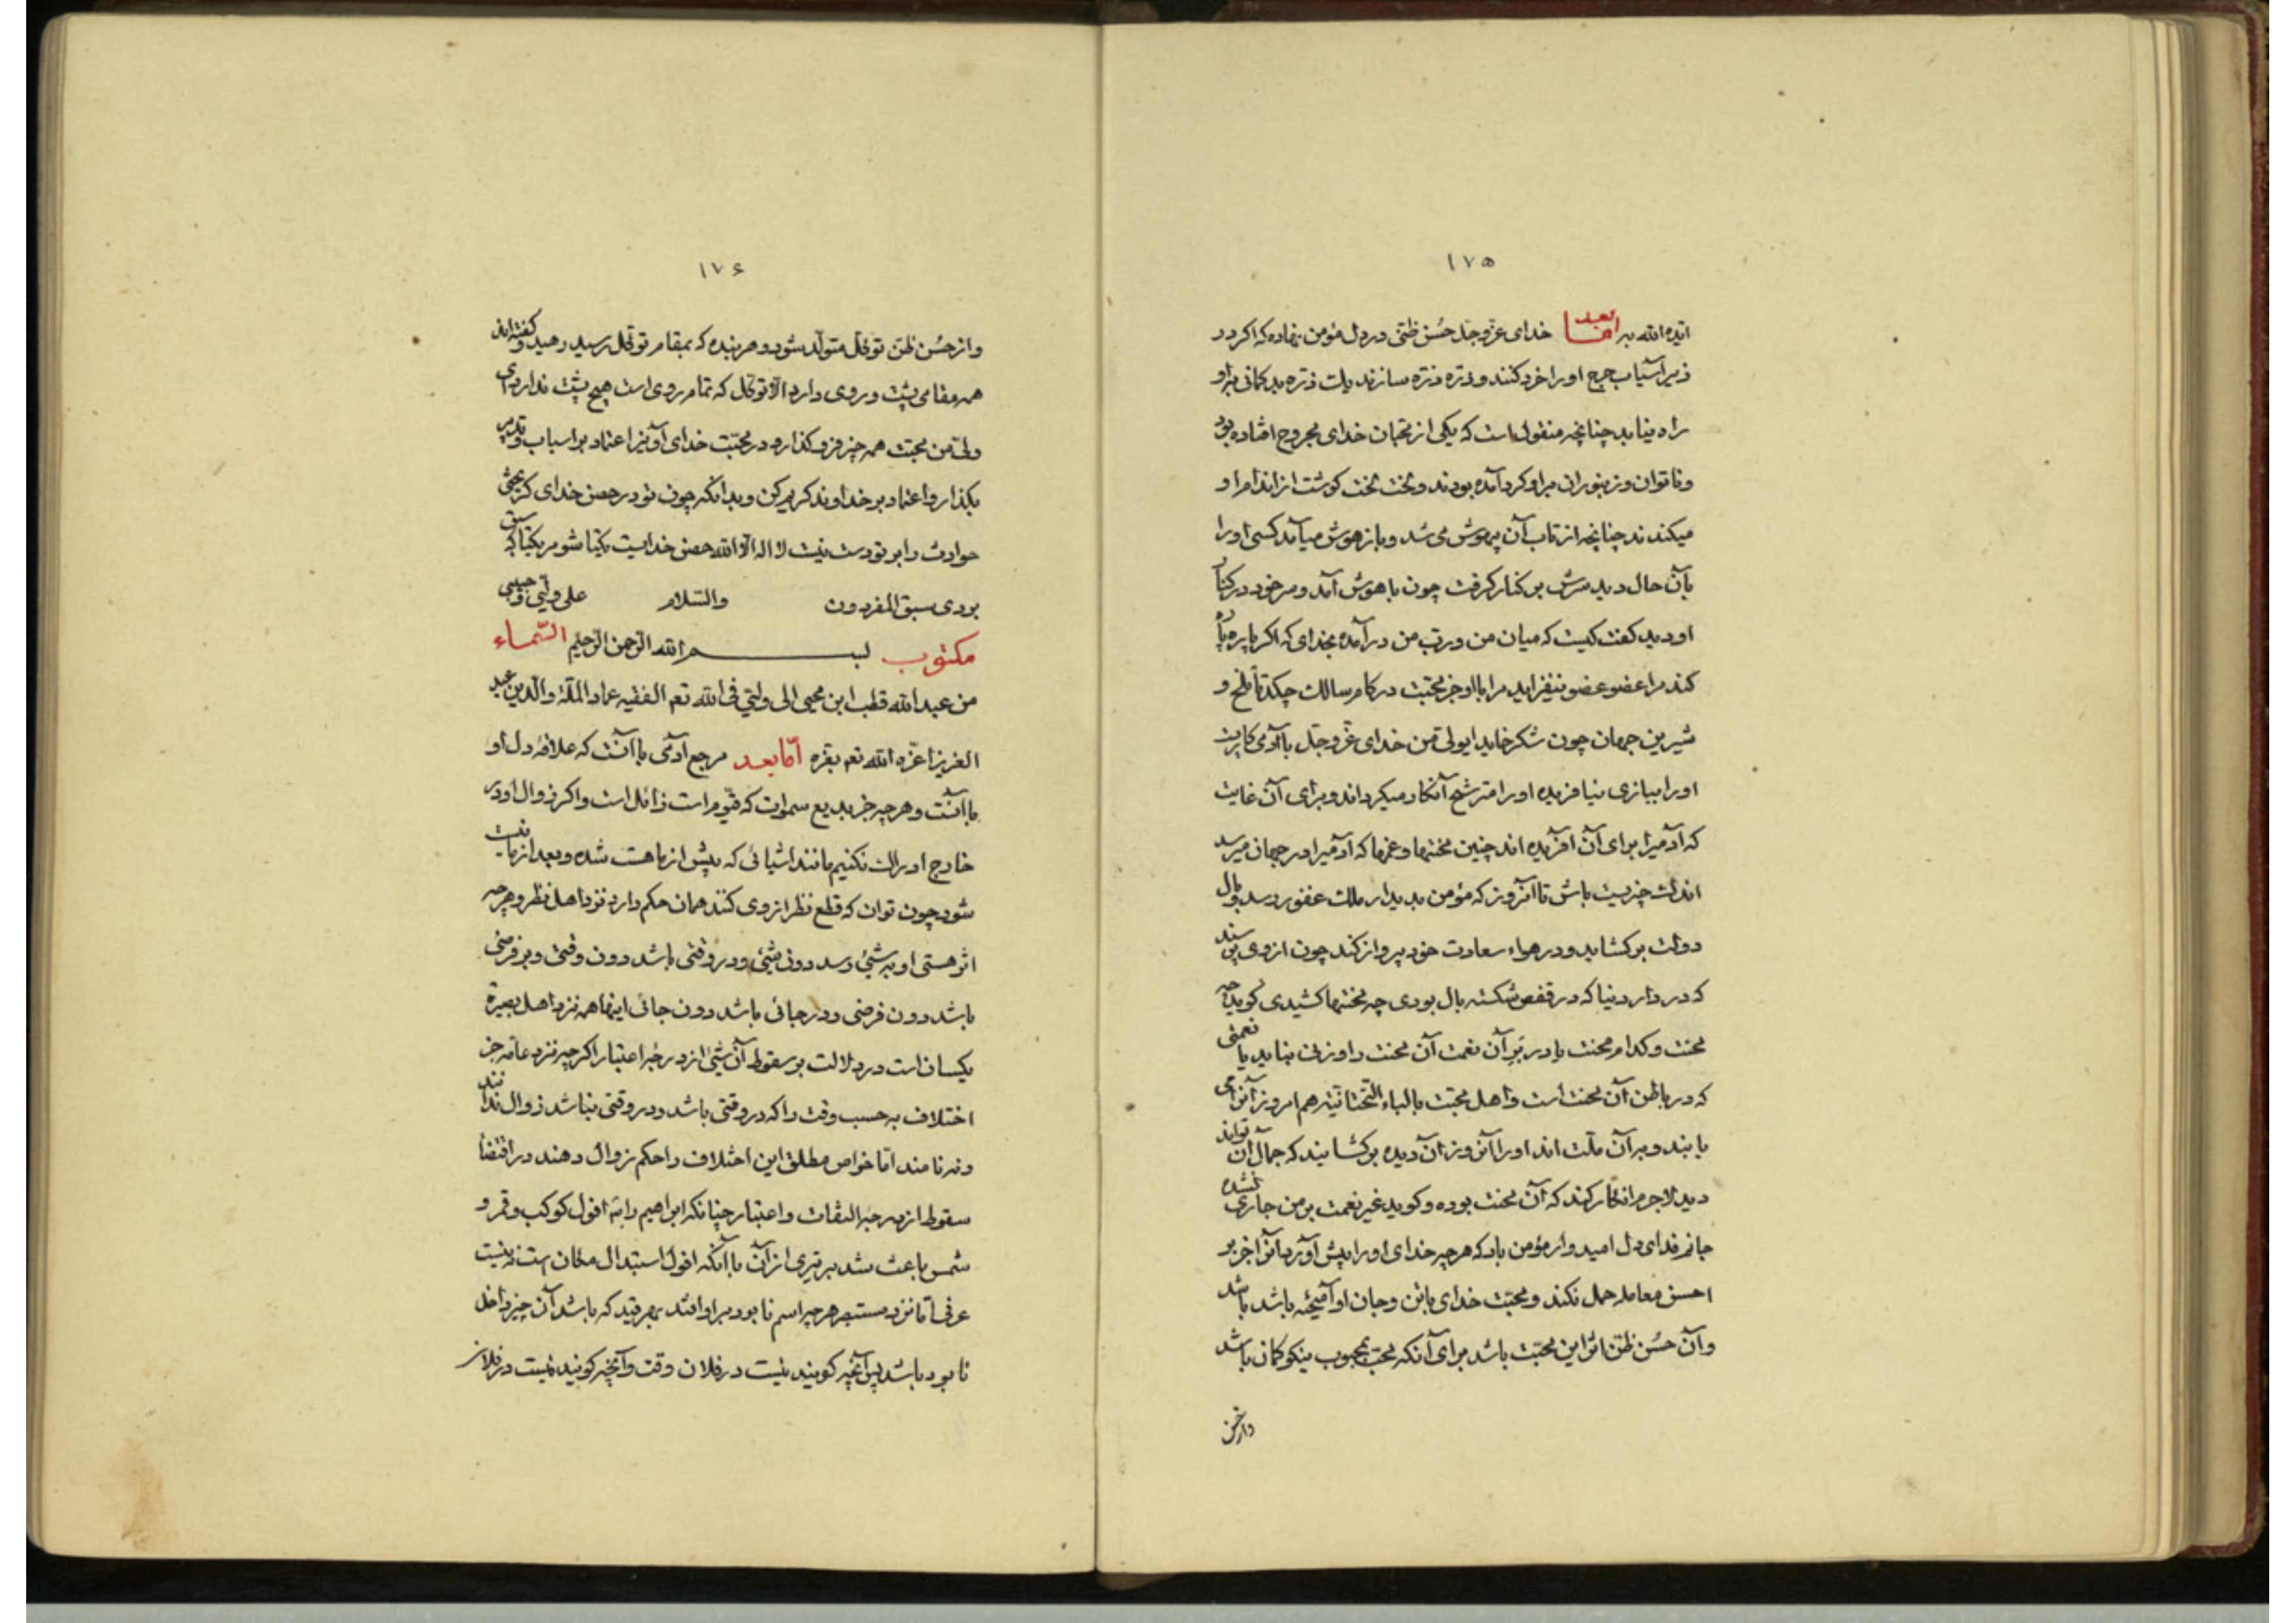 ۱۷۵
ایده الله به اما بعد خدای عزوجل حسن ظنی در دل مؤمن نهاده که اکر در
زیر آسیاب چرخ او را خرد کنند و ذره ذره سازند یک ذره بدکمانی به او
راه نیابد چنانچه منقول است که یکی از محبان خدای مجروح افتاده بود
و ناتوان و زنبوران بر او کرد آمده بودند و لخت لخت کوشت از اندام او
میکندند چنانچه از تاب آن بیهوش می شد و باز هوش میآمد کسی او را
بآن حال دید سرش بر کنار کرفت چون با هوش آمد و سر خود در کنار
او دید کفت کیست که میان من و رب من درآمده بخدای که اکر پاره پاره
کند مرا عضو عضو نیفزاید مرا با او جز محبت در کام سالک چکد تا تلخ و
شیرین جهان چون شکر خاید ای ولی من خدای عزوجل با آدمی کاریست
او را ببازی نیافریده او را مترشح آنکار میکرداند و برای آن غایت
که آدمیرا برای آن آفریده اند چنین محنتها و غمها که آدمیرا در جهان میرسد
اندک چیزیست باش تا آنروز که مؤمن بدیدار ملک غفور رسد و بال
دولت برکشاید و در هواء سعادت خود پرواز کند چون از وی پرسند
که در دار دنیا که در قفص شکسته بال بودی چه محنتها کشیدی کوید چه
محنت و کدام محنت یا در بر آن نعمت آن محنت را وزنی نباید یا نعمتی
که در باطن آن محنت است و اهل محبت بالباء التحتانیة هم امروز آنرا می
یابند و بر آن ملت اند او را آنروز آن دیده برکشایند که جمال آن تواند
دید لاجرم انکار کند که آن محنت بوده و کوید غیر نعمت بر من جاری نشده
جانم فدای دل امیدوار مؤمن باد که هر چه خدای او را پیش آورد آنرا جز بر
احسن معامله حمل نکند و محبت خدای با تن و جان او آمیخته باشد باشد
و آن حسن ظن اثر این محبت باشد برای آنکه محب بمحبوب نیکو کمان باشد
و از حسن
۱۷۶
و از حسن ظن توکل متولد شود و هر بنده که بمقام توکل رسید رهید و کفته اند
همه مقامی پشت و روی دارد الا توکل که تمام روی است هیچ پشت ندارد ای
ولی من محبت همه چیز فرو کذار و در محبت خدای آویز اعتماد بر اسباب و تدبیر
بکذار و اعتماد بر خداوند کریم کن و بدانکه چون تو در حصن خدای کریختی
حوادث را بر تو دست نیست لا اله الا الله حصن خداییست یکتا شو مر یکتا که سبق
بردی سبق المفردون والسلام علی ولیی و حبیبی
مکتوب بسم الله الرحمن الرحیم السماء
من عبد الله قطب ابن محیی الی ولیی فی الله تعم الفقیه عماد الملة والدین عبد
العزیز اعزه الله تعم بعزه اما بعد مرجع آدمی با آنست که علاقه دل او
با آنست و هر چه جز بدیع سموات که قیوم است زائل است و اکر زوال او در
خارج ادراک نکنیم مانند اشیائی که پیش از ما هست شده و بعد از ما نیست
شود چون توان که قطع نظر از وی کنند همان حکم دارد نزد اهل نظر و هر چه
اثر هستی او به شیئی رسد دون شیئی و در وقتی باشد دون وقتی و بر فرضی
باشد دون فرضی و در جائی باشد دون جائی اینها همه نزد اهل بصیرة
یکسان است در دلالت بر سقوط آن شیئ از درجه اعتبار اکرچه نزد عامه جز
اختلاف به حسب وقت را که در وقتی باشد و در وقتی نباشد زوال ندانند
و نه نامند اما خواص مطلق این اختلاف را حکم زوال دهند در اقتضا
سقوط از درجه التفات و اعتبار چنانکه ابراهیم را افول کوکب و قمر و
شمس باعث شد بر تبری از آن با آنکه افول استبدال مکان است نه نیست
عرفی اما نزد مستبصر هر چه اسم نابود بر او افتد بهر قید که باشد آن چیز داخل
نابود باشد پس آنچه کویند نیست در فلان وقت و آنچه کویند نیست در فلان